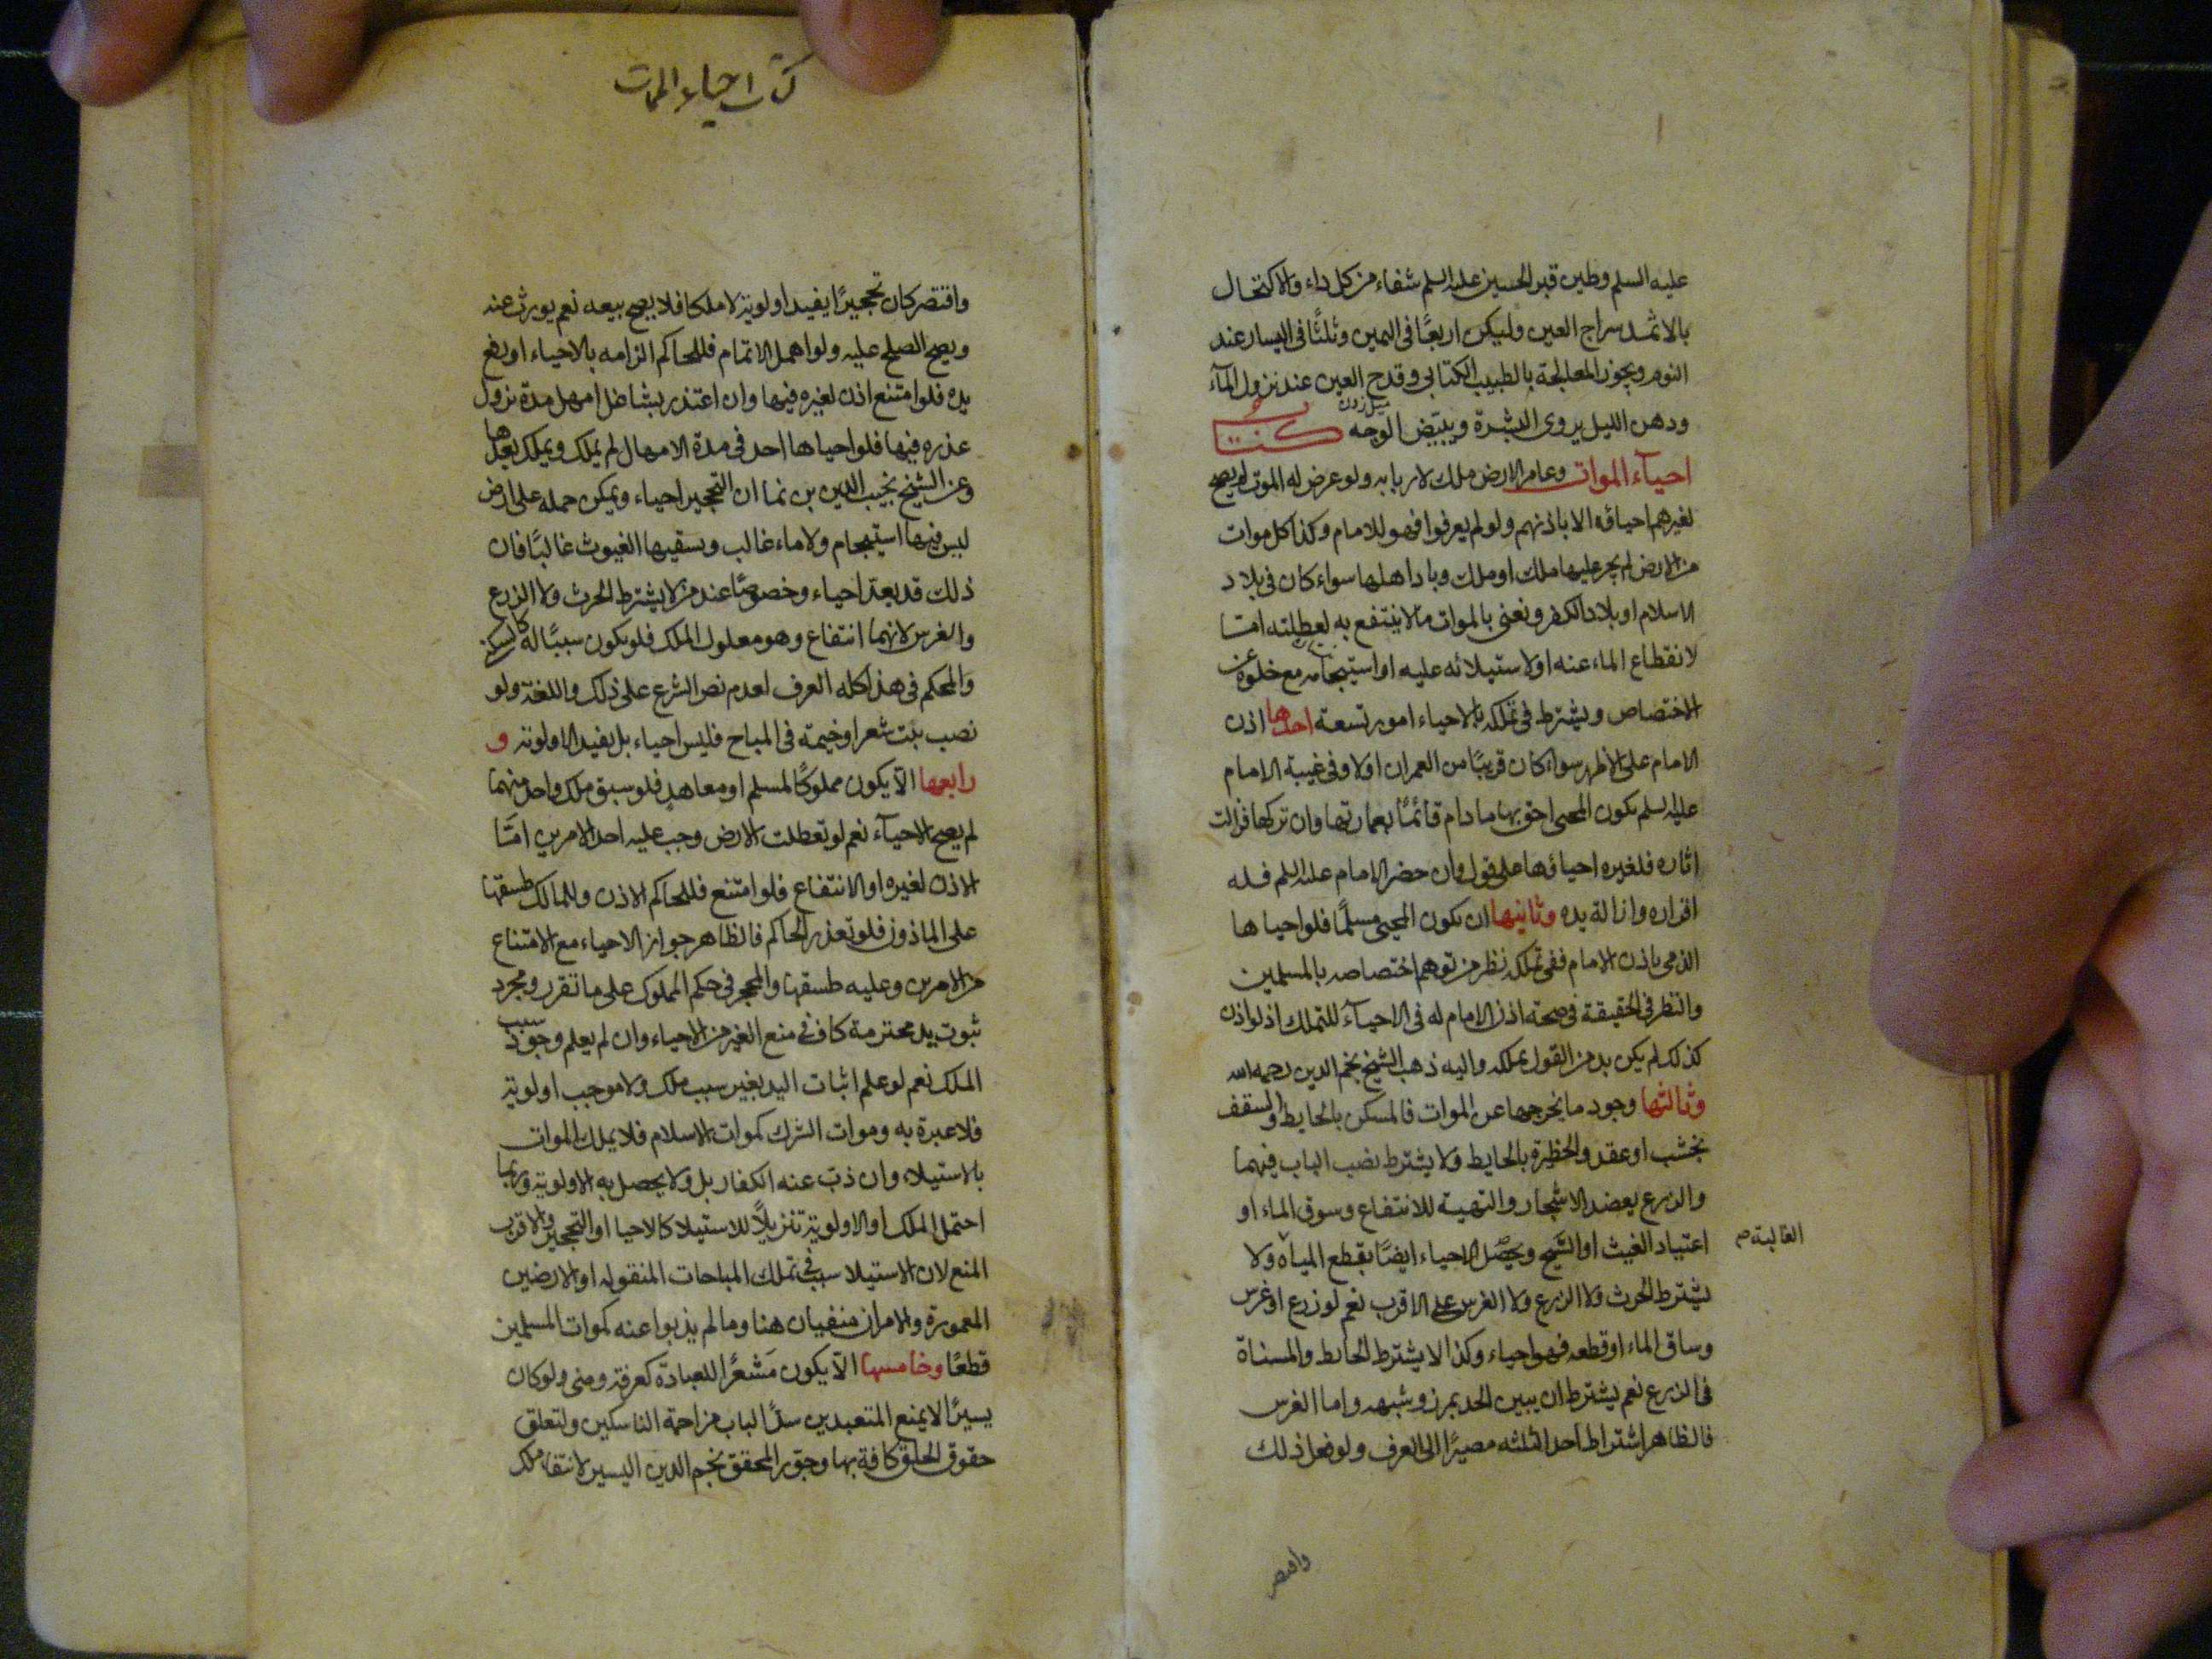 عليه السلم وطين قبر الحسين عليه السلم شفاء من كل داء والاكتحال
بالاثمد سراج العين وليكن اربعًا فى اليمين وثلثًا فى اليسار عند
النوم ويجوز المعالجة بالطبيب الكتابى وقدح العين عند نزول المآء
ميل زدن
ودهن الليل يروى البشرة ويبيّض الوجه كتاب
احيآء الموات وعامر الارض ملك لاربابه ولو عرض له الموت لم يصح
لغيرهم احياؤه الا باذنهم ولو لم يعرفوا فهو للامام وكذا كل موات
من الارض لم يجر عليها ملك او ملك وباد اهلها سواء كان فى بلاد
الاسلام او بلاد الكفر ونعنى بالموات ما لا ينتفع به لعطلته امّا
لانقطاع الماء عنه او لاستيلائه عليه او استيجامه مع خلوه عن
الاختصاص ويشترط فى تملكه بالاحياء امور تسعة احدها اذن
الامام على الاظهر سواء كان قريبًا من العمران اولا وفى غيبة الامام
عليه السلم يكون المحيى احق بها ما دام قائمًا بعمارتها وان تركها فزالت
اثاره فلغيره احياؤها على قول وان حضر الامام عليه السلم فله
اقراره وازالة يده وثانيها ان يكون المحيى مسلمًا فلو احياها
الذمى باذن الامام ففى تملكه نظر من توهم اختصاصه بالمسلمين
والنظر فى الحقيقة فى صحة اذن الامام له فى الاحيآء للتملك اذ لو اذن
كذلك لم يكن بد من القول بملكه واليه ذهب الشيخ نجم الدين رحمه الله
وثالثها وجود ما يخرجها عن الموات فالمسكن بالحايط والسقف
بخشب او عقد والحظيرة بالحايط ولا يشترط نصب الباب فيهما
والزرع بعضد الاشجار والتهيئة للانتفاع وسوق الماء او
اعتياد الغيث او السّيح ويحصل الاحياء ايضًا بقطع المياه ولا
الغالبة ص
يشترط الحرث ولا الزرع ولا الغرس على الاقرب نعم لو زرع او غرس
وساق الماء او قطعه فهو احياء وكذا لا يشترط الحايط والمسناة
فى الزرع نعم يشترط ان يبين الحد بمرز وشبهه واما الغرس
فالظاهر اشتراط احد الثلثه مصيرًا الى العرف ولو فعل ذلك
واقتصر
كتاب احياء الموات
واقتصر كان تحجيرًا يفيد اولوية لا ملكا فلا يصح بيعه نعم يورث عنه
ويصح الصلح عليه ولو اهمل الاتمام فللحاكم الزامه بالاحياء او رفع
يده فلو امتنع اذن لغيره فيها وان اعتذر بشاغل امهل مدة نزول
عذره فيها فلو احياها احد فى مدة الامهال لم يملك ويملك بعدها
وعن الشيخ نجيب الدين بن نما ان التحجير احياء ويمكن حمله على ارض
ليس فيها استيجام ولا ماء غالب وسقيها الغيوث غالبًا فان
ذلك قد يعد احياء وخصوصًا عند من لا يشترط الحرث ولا الزرع
والغرس لانهما انتفاع وهو معلول الملك فلو يكون سببًا له
والمحكم فى هذا كله العرف لعدم نص الشرع على ذلك واللغة ولو
نصب بيت شعر او خيمة فى المباح فليس احياء بل يفيد الاولوية و
رابعها الّا يكون مملوكًا لمسلم او معاهدٍ فلو سبق ملك واحد منهما
لم يصح الاحيآء نعم لو تعطلت الارض وجب عليه احد الامرين امّا
الاذن لغيره او الانتفاع فلو امتنع فللحاكم الاذن وللمالك طسقها
على الماذون فلو تعذر الحاكم فالظاهر جواز الاحياء مع الامتناع
من الامرين وعليه طسقها والمحجر فى حكم المملوك على ما تقرر ومجرد
ثبوت يد محترمة كاف فى منع الغير من الاحياء وان لم يعلم وجود سبب
الملك نعم لو علم اثبات اليد بغير سبب ملك ولا موجب اولوية
فلا عبرة به وموات الشرك كموات الاسلام فلا يملك الموات
بالاستيلاء وان ذبّ عنه الكفار بل ولا يحصل به الاولوية وربما
احتمل الملك او الاولوية تنزيلًا للاستيلا كالاحيا او التحجير والاقرب
المنع لان الاستيلا سبب فى تملك المباحات المنقوله او الارضين
المعمورة والامران منفيان هنا وما لم يذبوا عنه كموات المسلمين
قطعًا وخامسها الّا يكون مَشْعرًا للعبادة كعرفة ومنى ولو كان
يسيرًا لا يمنع المتعبدين سدًّا لباب مزاحمة الناسكين ولتعلق
حقوق الخلق كافة بها وجوّز المحقق نجم الدين اليسير لا